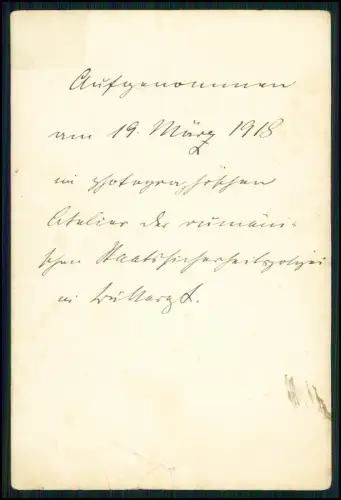 Aufgenommen
am 19. März 1918
im photographischen
Atelier der rumäni-
schen Staatssicherheitspolizei
in Bukarest.